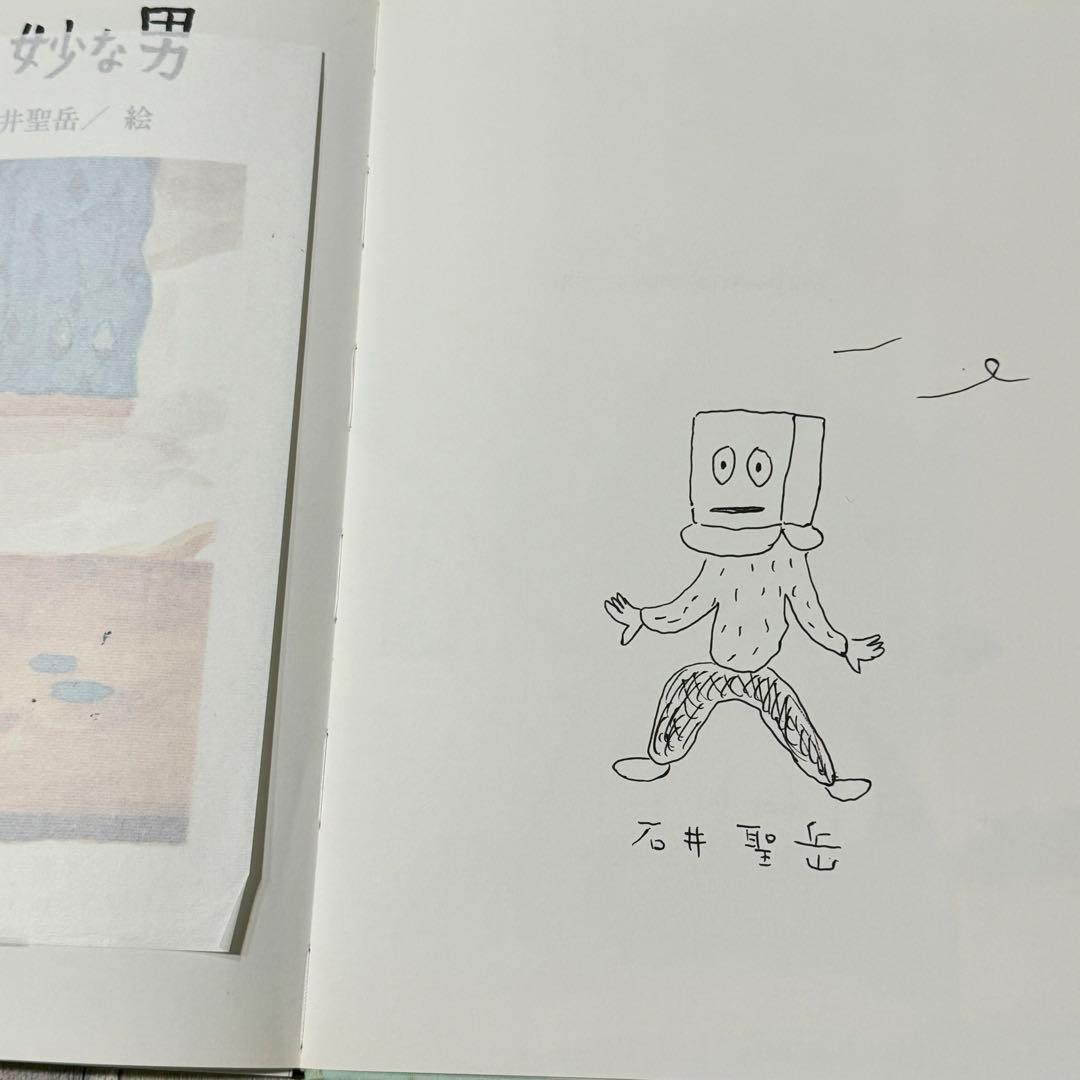 妙な男
井聖岳／ 絵
石井 聖岳